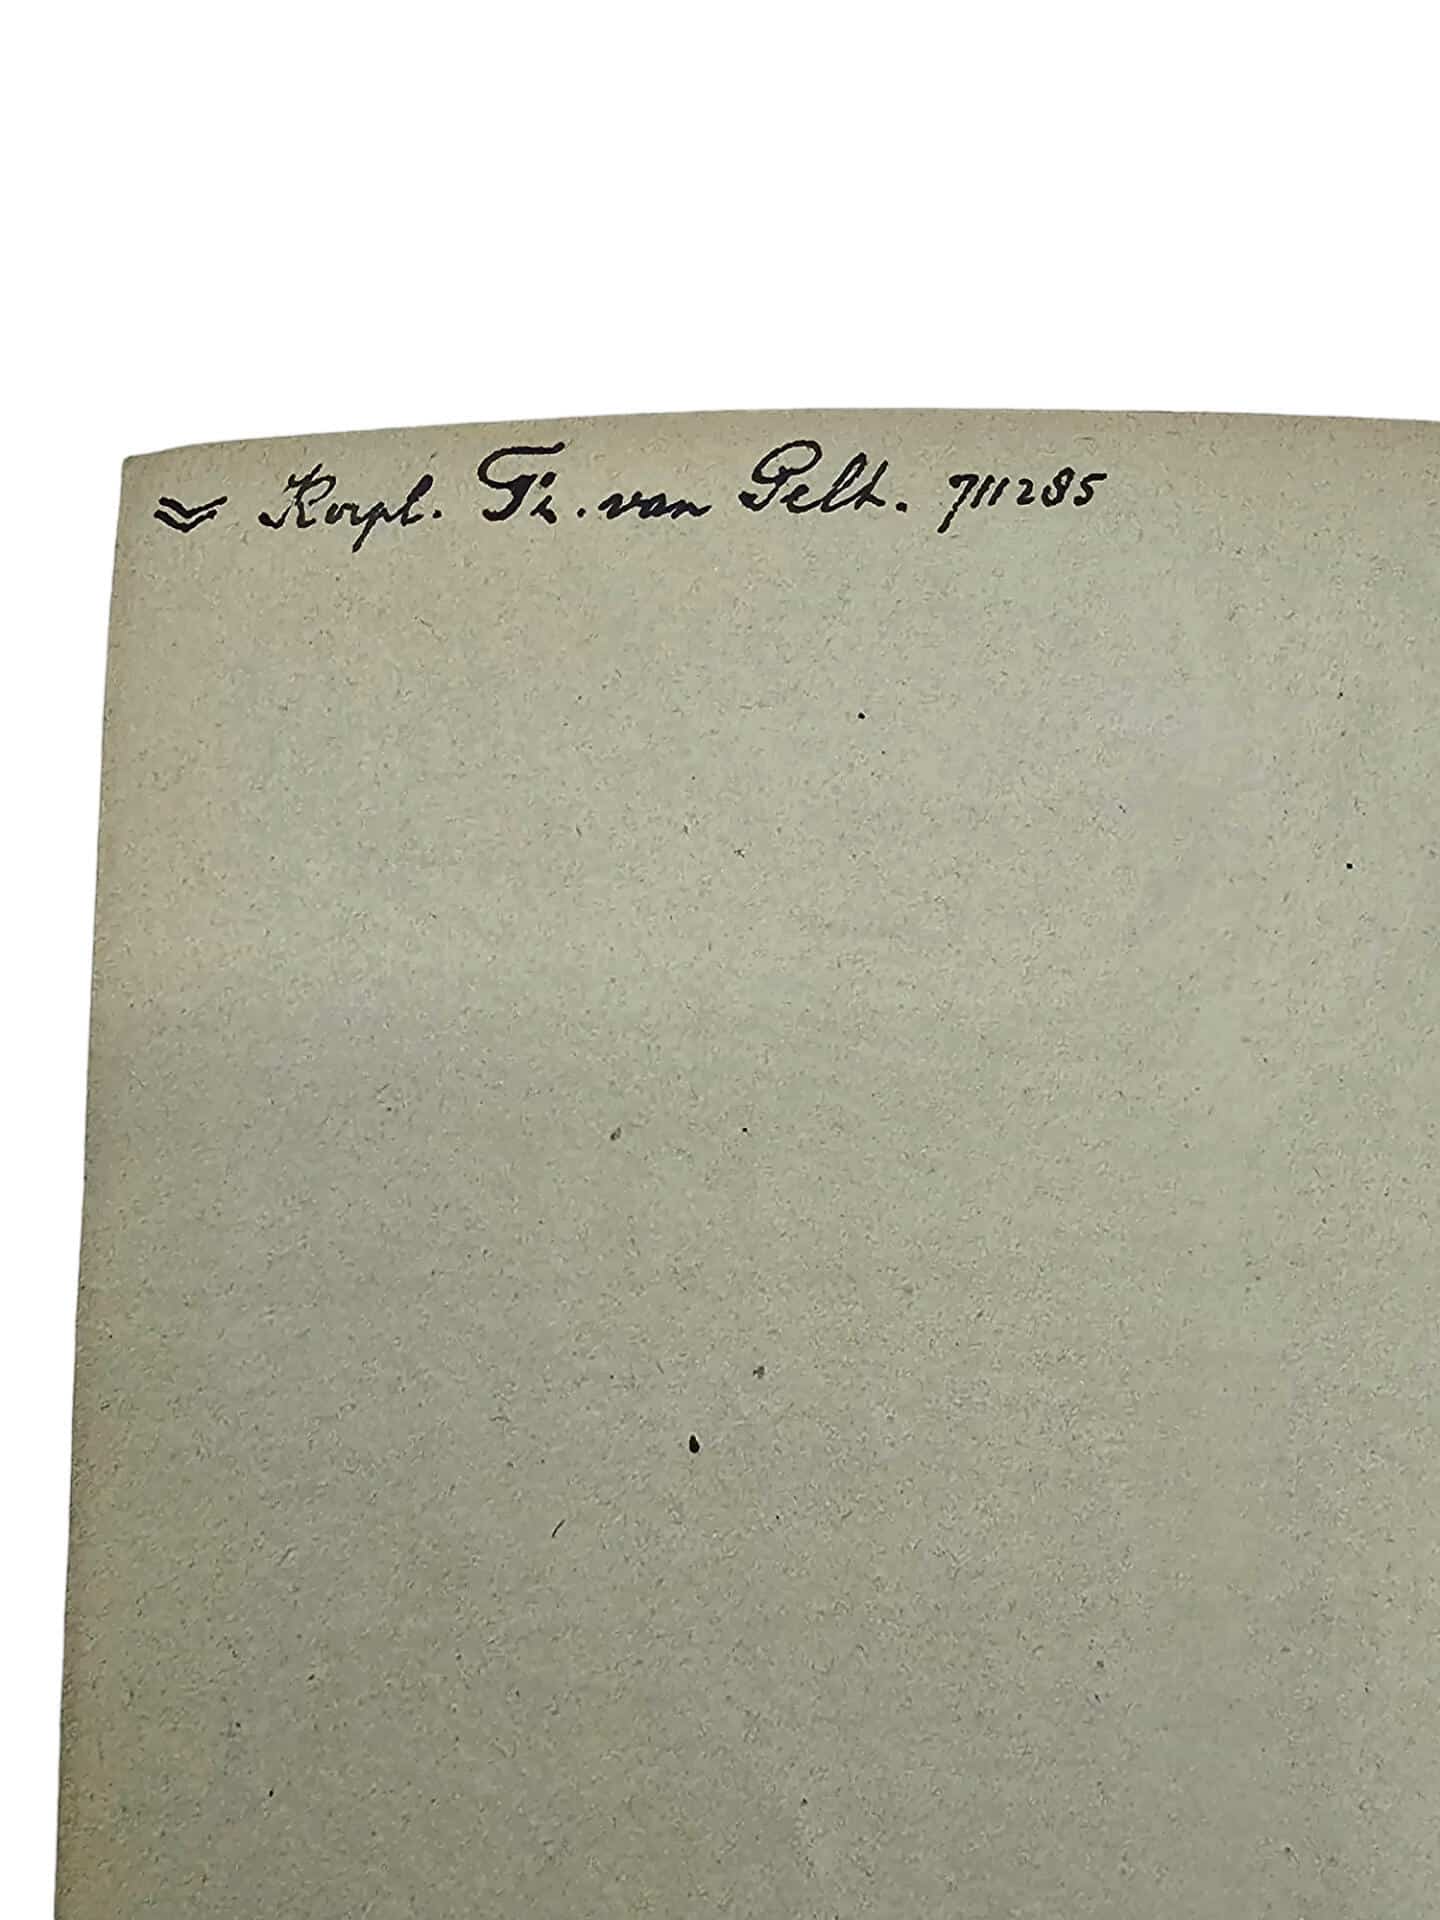 Korpl. Th. van Pelt. 711285